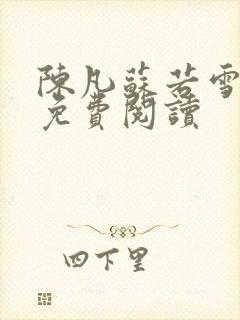 陳凡蘇若雪
免費閱讀
四下里